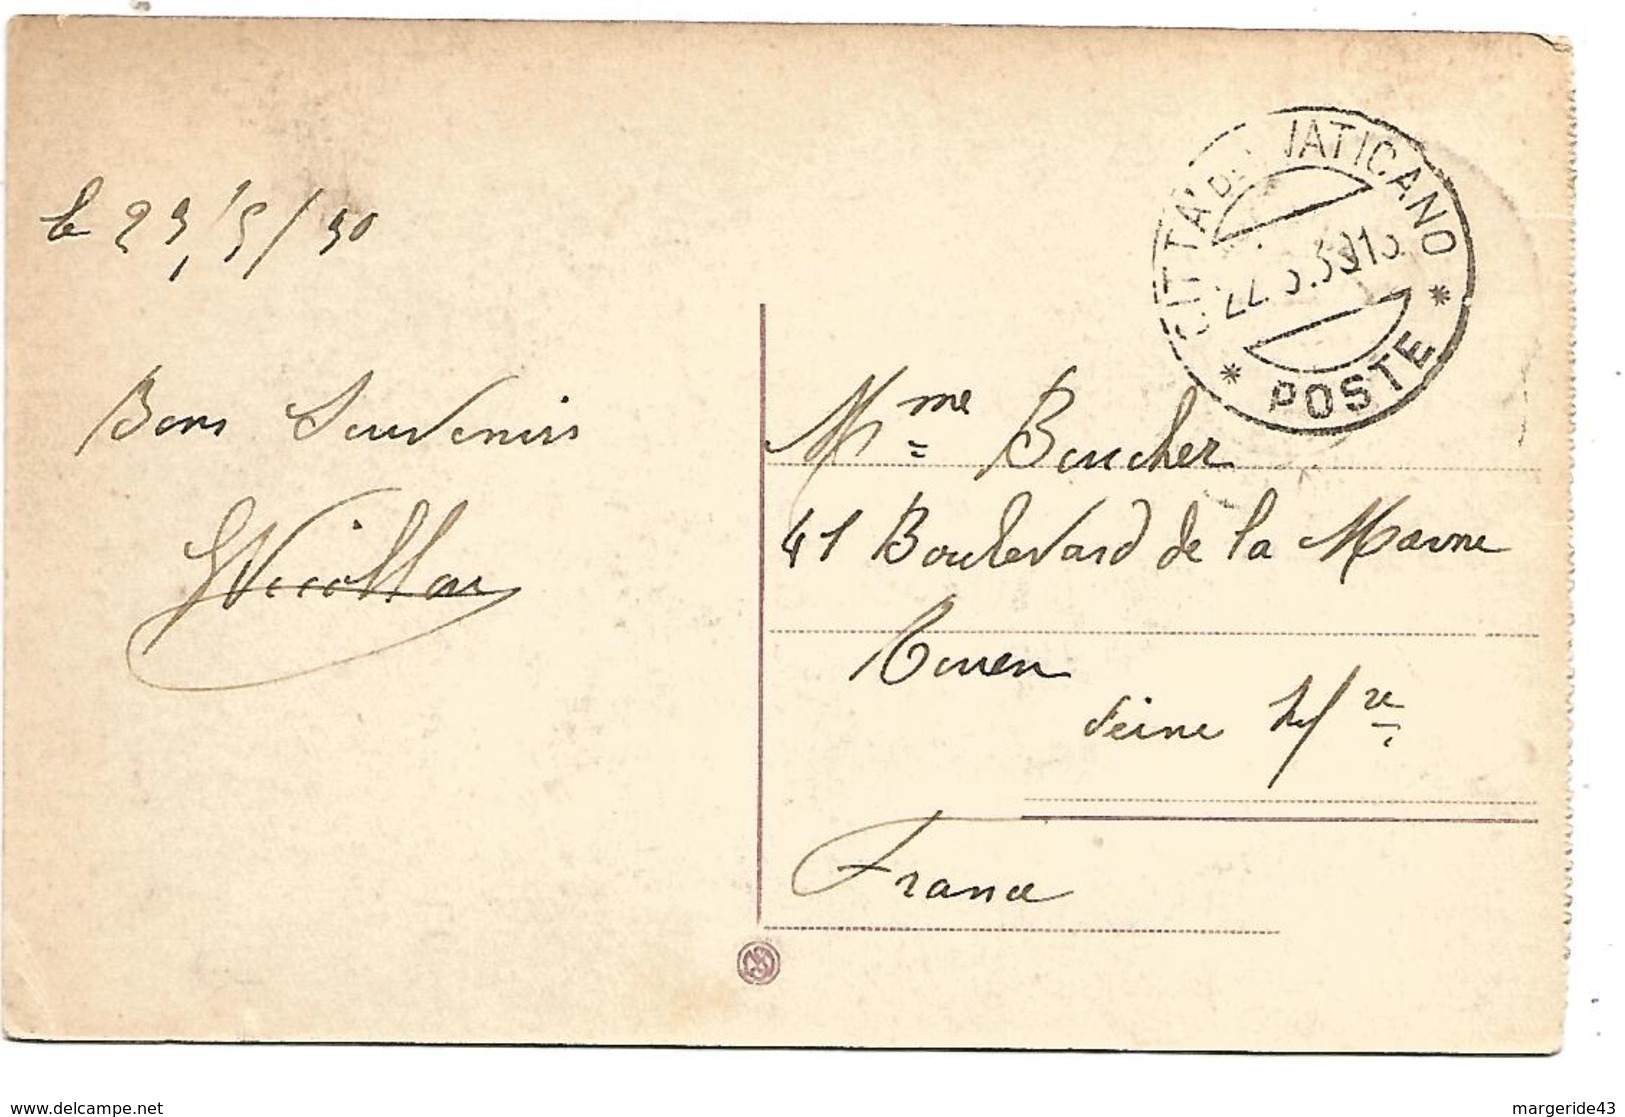 le 23/5/50
Bons Souvenirs
CITTA DEL VATICANO
POSTE
Mme Boucher
41 Boulevard de la Marne
Rouen
Seine Infre
France
www.delcampe.net
margeride43